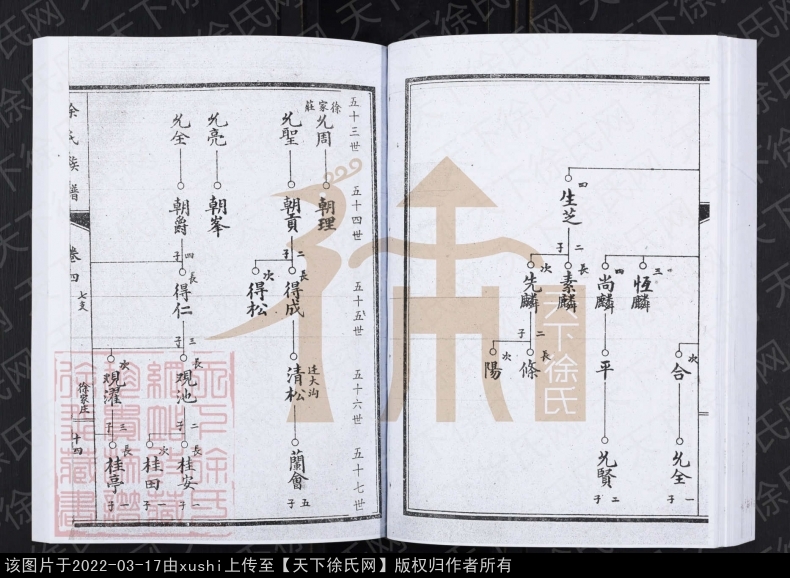 三
恆麟
四
尚麟
平
允賢
二子
次
合
允全
一子
四
生芝
二子
長
素麟
次
先麟
二子
長
條
次
陽
五十三世
五十四世
五十五世
五十六世
五十七世
徐家莊
允周
朝理
允聖
朝貢
二子
長
得成
清松
迬大沟
蘭會
五子
次
得松
允亮
朝峯
允全
朝爵
四子
長
得仁
三子
長
观池
二子
長
桂安
一子
次
桂田
一子
次
观濯
三子
長
桂亭
一子
徐氏族譜
卷四
七支
徐家庄
十四
天下徐氏
天下徐氏网
该图片于2022-03-17由xushi上传至【天下徐氏网】版权归作者所有